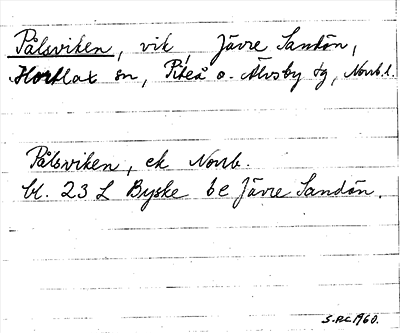 Pålsviken, vik, Jävre Sandön,
Hortlax sn, Piteå o. Älvsby tg, Norrb. l.
Pålsviken, ek Norrb.
bl. 23 L Byske be Jävre Sandön.
S.P.C. 1960.